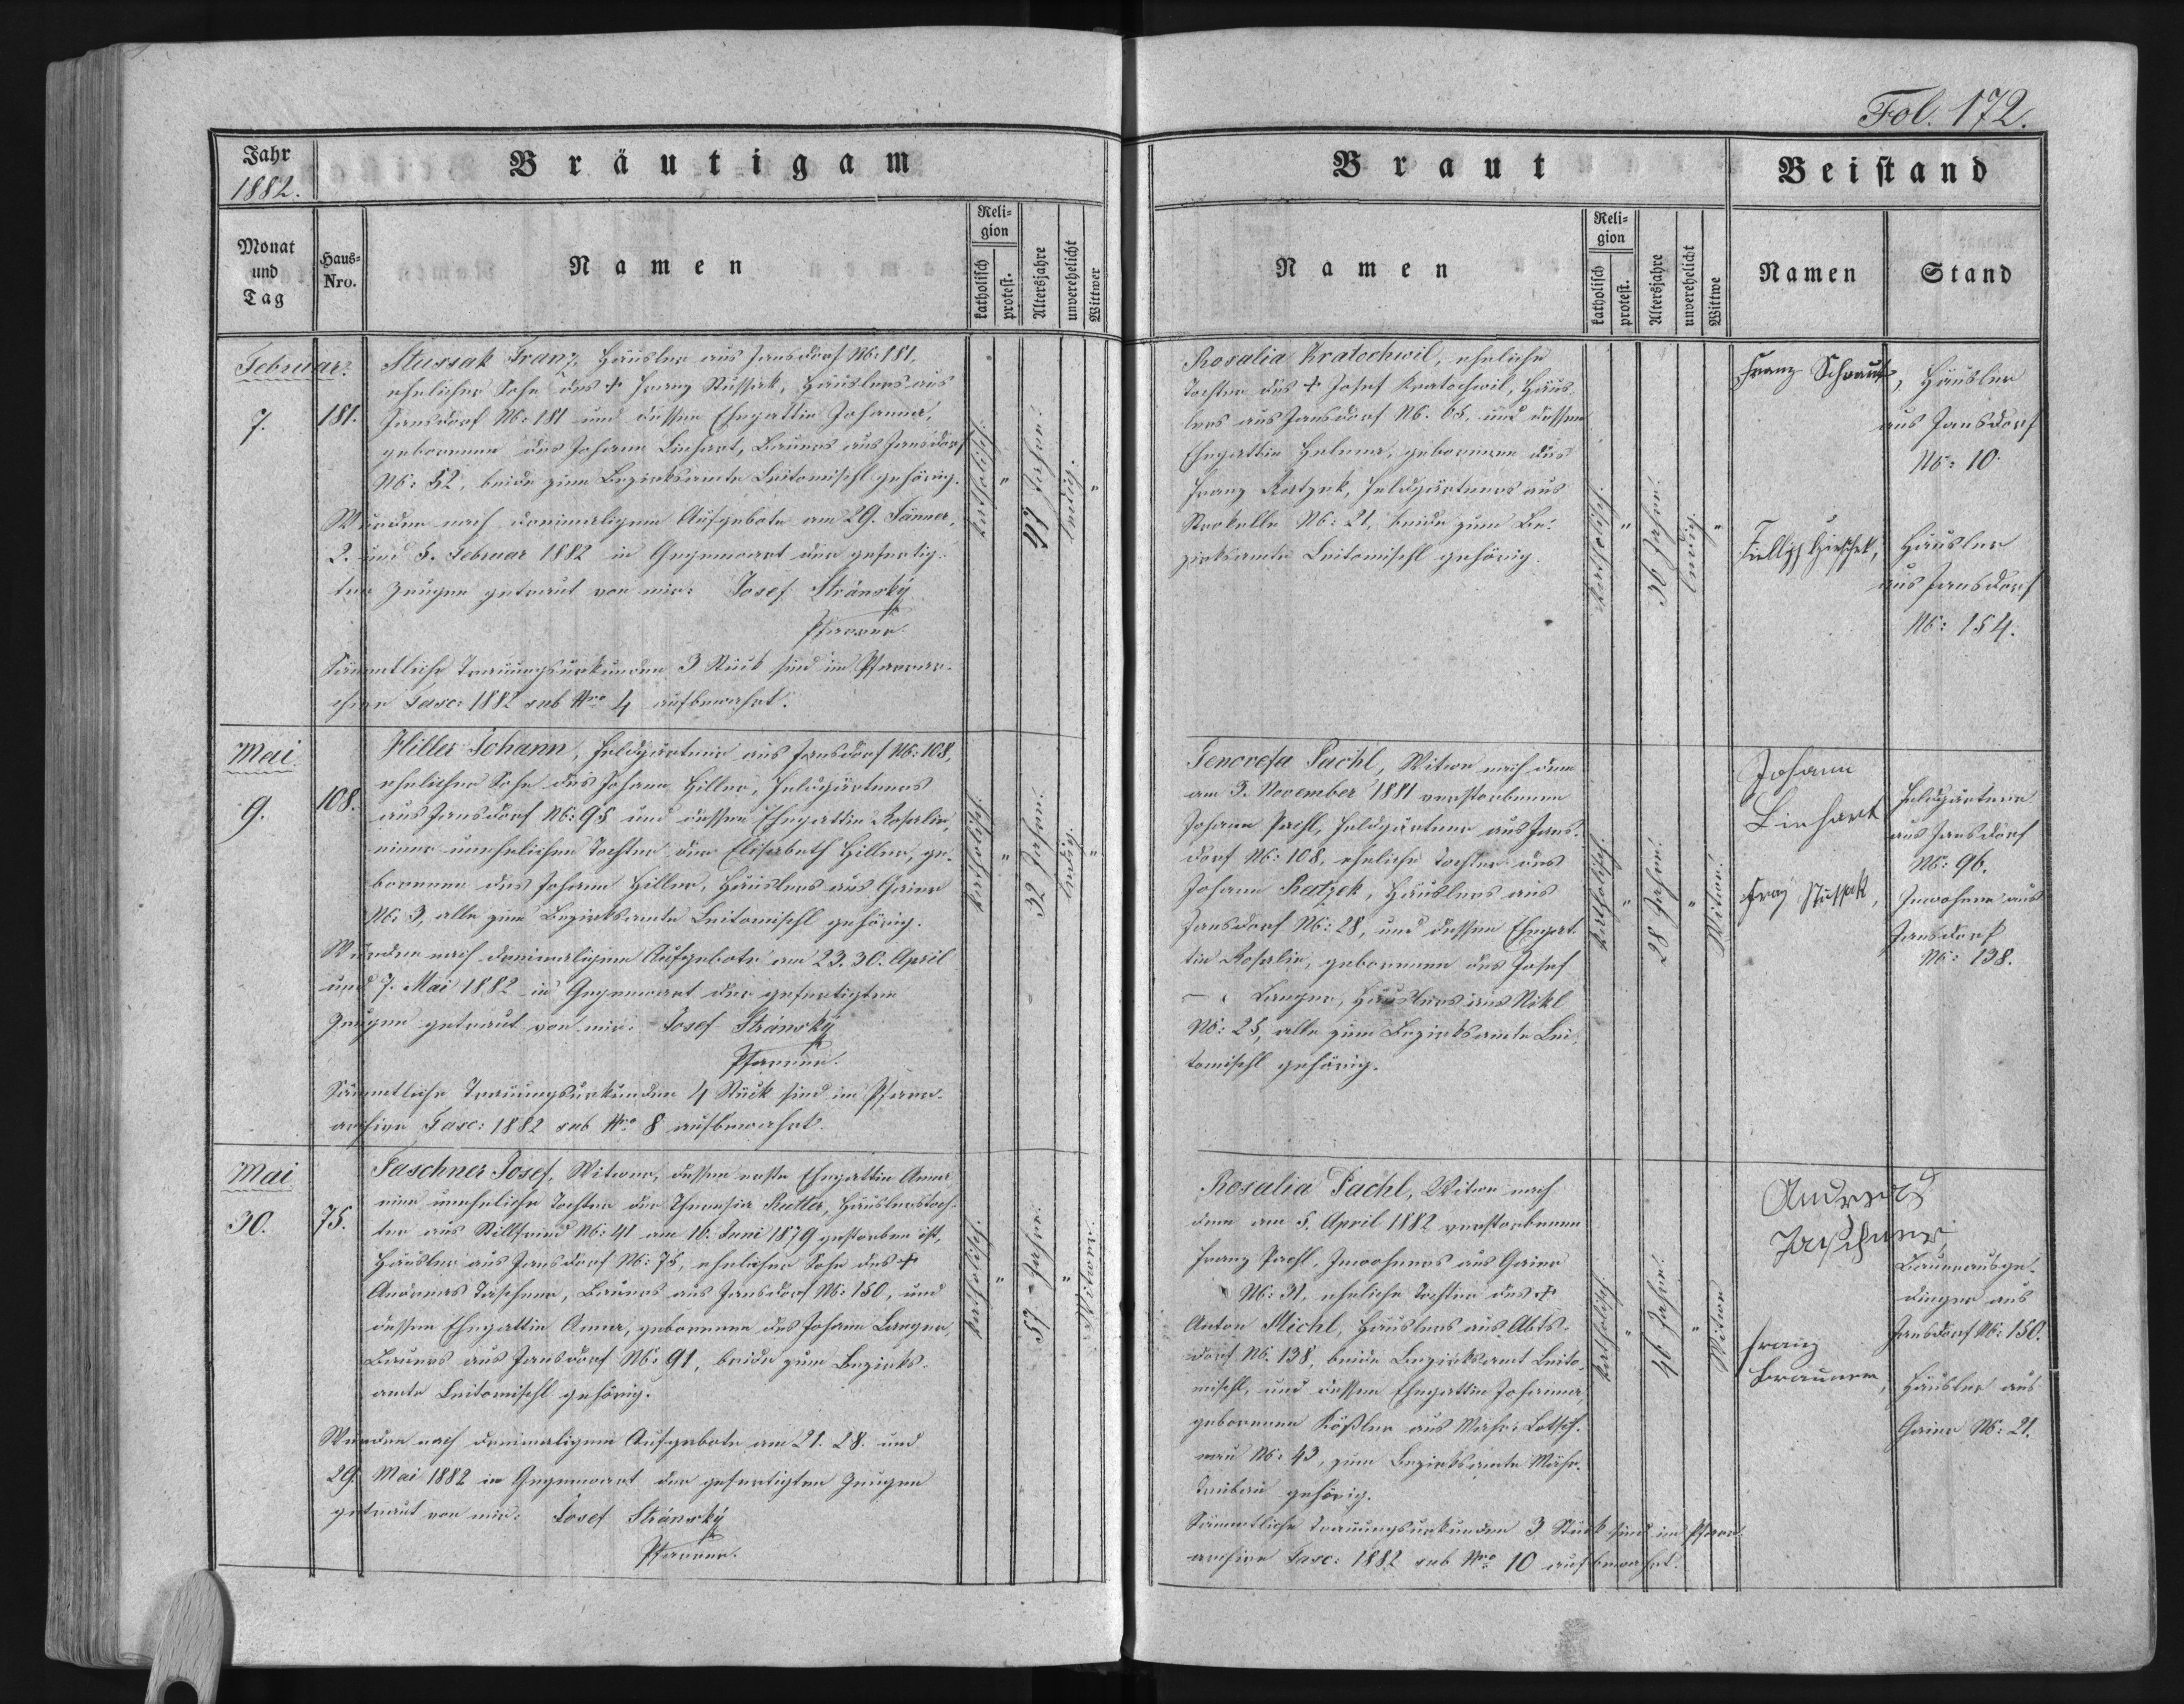 Fol. 172.
Jahr
1882.
Bräutigam
Braut
Beistand
Monat
und
Tag
Haus-
Nro.
Namen
Reli-
gion
katholisch
protest.
Altersjahre
unverehelicht
Wittwer
Namen
Reli-
gion
katholisch
protest.
Altersjahre
unverehelicht
Wittwe
Namen
Stand
Februar
7.
181.
Stussak Franz, Häusler aus Jansdorf No: 181,
ehelicher Sohn des + Franz Stussak, Häuslers aus
Jansdorf No: 181 und dessen Ehegattin Johanna,
geborenen des Johann Linhart, Bauers aus Jansdorf
No: 52, beide zum Bezirksamte Leitomischl gehörig.
Wurden nach dreimaligem Aufgebote am 29. Jänner,
2. und 5. Februar 1882 in Gegenwart der gefertig-
ten Zeugen getraut von mir: Josef Stránský
Pfarrer.
Sämmtliche Trauungsurkunden 3 Stück sind im Pfarrar-
chive Fasc: 1882 sub Nro 4 aufbewahrt.
katholisch.
"
47 Jahre.
ledig.
"
Rosalia Kratochwil, eheliche
Tochter des + Josef Kratochwil, Häus-
lers aus Jansdorf No. 65, und dessen
Ehegattin Helena, geborenen des
Franz Ratzek, Feldgärtners aus
Strokelle No: 21, beide zum Be-
zirksamte Leitomischl gehörig.
katholisch.
"
36 Jahre.
ledig.
"
Franz Schraut, Häusler
aus Jansdorf
No: 10.
Häusler
aus Jansdorf
No: 154.
Mai
9.
108.
Hiller Johann, Feldgärtner aus Jansdorf No: 108,
ehelicher Sohn des Johann Hiller, Feldgärtners
aus Jansdorf No: 95 und dessen Ehegattin Rosalia,
einer unehelichen Tochter der Elisabeth Hiller, ge-
borenen des Johann Hiller, Häuslers aus Gaier
No: 3, alle zum Bezirksamte Leitomischl gehörig.
Wurden nach dreimaligem Aufgebote am 23. 30. April
und 7. Mai 1882 in Gegenwart der gefertigten
Zeugen getraut von mir: Josef Stránský
Pfarrer.
Sämmtliche Trauungsurkunden 4 Stück sind im Pfarr-
archive Fasc: 1882 sub Nro 8 aufbewahrt.
katholisch.
"
32 Jahre.
ledig.
"
Genovefa Pachl, Witwe nach dem
am 3. November 1881 verstorbenen
Johann Pachl, Feldgärtner aus Jans-
dorf No: 108, eheliche Tochter des
Johann Ratzek, Häuslers aus
Jansdorf No: 28, und dessen Ehegat-
tin Rosalia, geborenen des Josef
Langer, Häuslers aus Nikl
No: 25, alle zum Bezirksamte Lei-
tomischl gehörig.
katholisch.
"
28 Jahre.
"
Witwe.
Johann
Linhart
Feldgärtner
aus Jansdorf
No: 96.
Franz Stussak, Inwohner aus
Jansdorf
No: 138.
Mai
30.
75.
Taschner Josef, Witwer, dessen erste Ehegattin Anna,
eine uneheliche Tochter der Theresia Rutler, Häuslerstoch-
ter aus Stillfried No: 41 am 16. Juni 1879 gestorben ist,
Häusler aus Jansdorf No: 75, ehelicher Sohn des +
Andreas Taschner, Bauers aus Jansdorf No: 150, und
dessen Ehegattin Anna, geborenen des Johann Langer,
Bauers aus Jansdorf No: 91, beide zum Bezirks-
amte Leitomischl gehörig.
Wurden nach dreimaligem Aufgebote am 21. 28. und
29. Mai 1882 in Gegenwart der gefertigten Zeugen
getraut von mir: Josef Stránský
Pfarrer.
katholisch.
"
57 Jahre.
"
Witwer.
Rosalia Pachl, Witwe nach
dem am 5. April 1882 verstorbenen
Franz Pachl, Inwohners aus Gaier
No: 31, eheliche Tochter des +
Anton Michl, Häuslers aus Abts-
dorf No. 138, beide Bezirksamt Leito-
mischl, und dessen Ehegattin Johanna,
geborenen Rößler aus Mähr. Lotsch-
nau No: 43, zum Bezirksamte Mähr.
Trübau gehörig.
Sämmtliche Trauungsurkunden 3 Stück sind im Pfarr-
archive Fasc: 1882 sub Nro 10 aufbewahrt.
katholisch.
"
46 Jahre.
"
Witwe
Andreas
Taschner
Bauerausge-
dinger aus
Jansdorf No: 150.
Franz
Brauner, Häusler aus
Gaier No: 21.